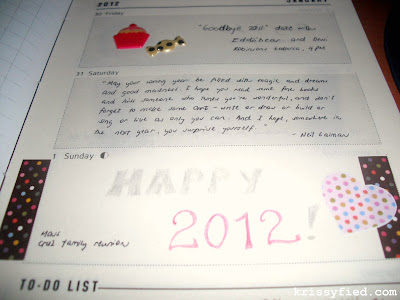 2012
JANUARY
30 Friday
"Goodbye 2011" date with
Eddiebear and
Robinsons 4pm
31 Saturday
"May your coming year be filled with magic and dreams
and good madness. I hope you read some fine books
and kiss someone who thinks you're wonderful, and don't
forget to make some art - write or draw or build or
sing or live as only you can. And I hope, somewhere in
the next year, you surprise yourself."
- Neil Gaiman
1 Sunday
HAPPY
2012!
Mass
Cruz family reunion
TO-DO LIST
krissyfied.com